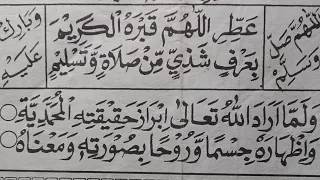 اللهم صل وسلم
عَطِّرِ اللّٰهُمَّ قَبْرَهُ الْكَرِيْمَ
بِعَرْفٍ شَذِيٍّ مِّنْ صَلَاةٍ وَّتَسْلِيْمٍ
وبارك عليه
وَلَمَّا اَرَادَ اللّٰهُ تَعَالٰى اِبْرَازَ حَقِيْقَتِهِ الْمُحَمَّدِيَّةِ
وَاِظْهَارَهُ جِسْمًا وَّرُوْحًا بِصُوْرَتِهٖ وَمَعْنَاهُ